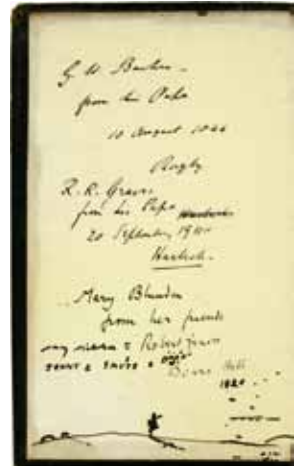 G. H.
from his Papa
10 August 1844
Rugby
R. R. Graves
from his Papa
20 September 1911
Harlech.
Mary Blunden
from her friends
Nancy & Robert Graves
JENNY & DAVID &
Boars Hill
1920